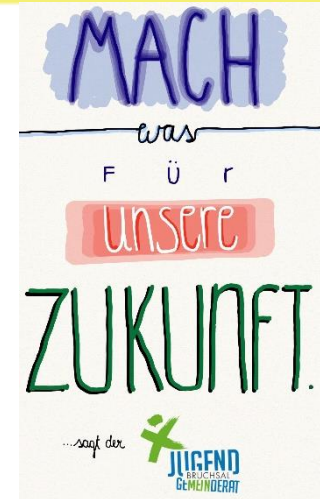 MACH
was
FÜr
unsere
ZUKUNFT.
...sagt der
JUGEND
BRUCHSAL
GEMEINDERAT